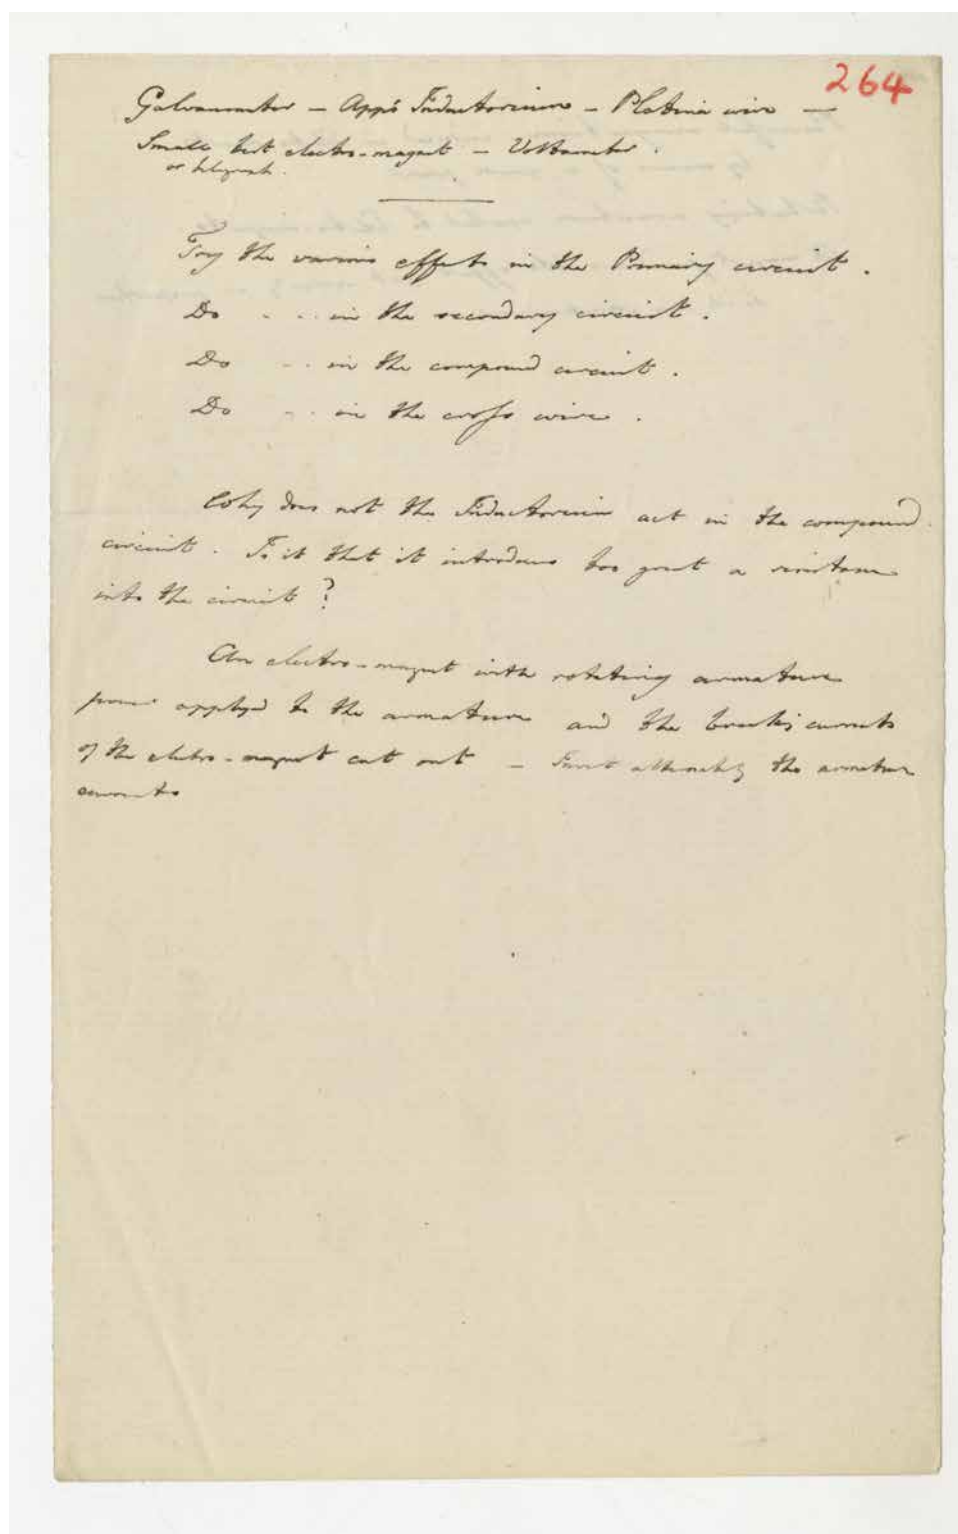 264
Galvanometer — Apps Inductorium — Platina wire —
Small bent electro-magnet — Voltameter.
or telegraph.
Try the various effects in the Primary circuit.
Do - - - in the secondary circuit.
Do - - in the compound circuit.
Do - - in the cross wire.
Why does not the Inductorium act in the compound
circuit. Is it that it introduces too great a resistance
into the circuit?
An electro-magnet with rotating armature
power applyed to the armature and the currents
of the electro-magnet cut out — the armature
currents